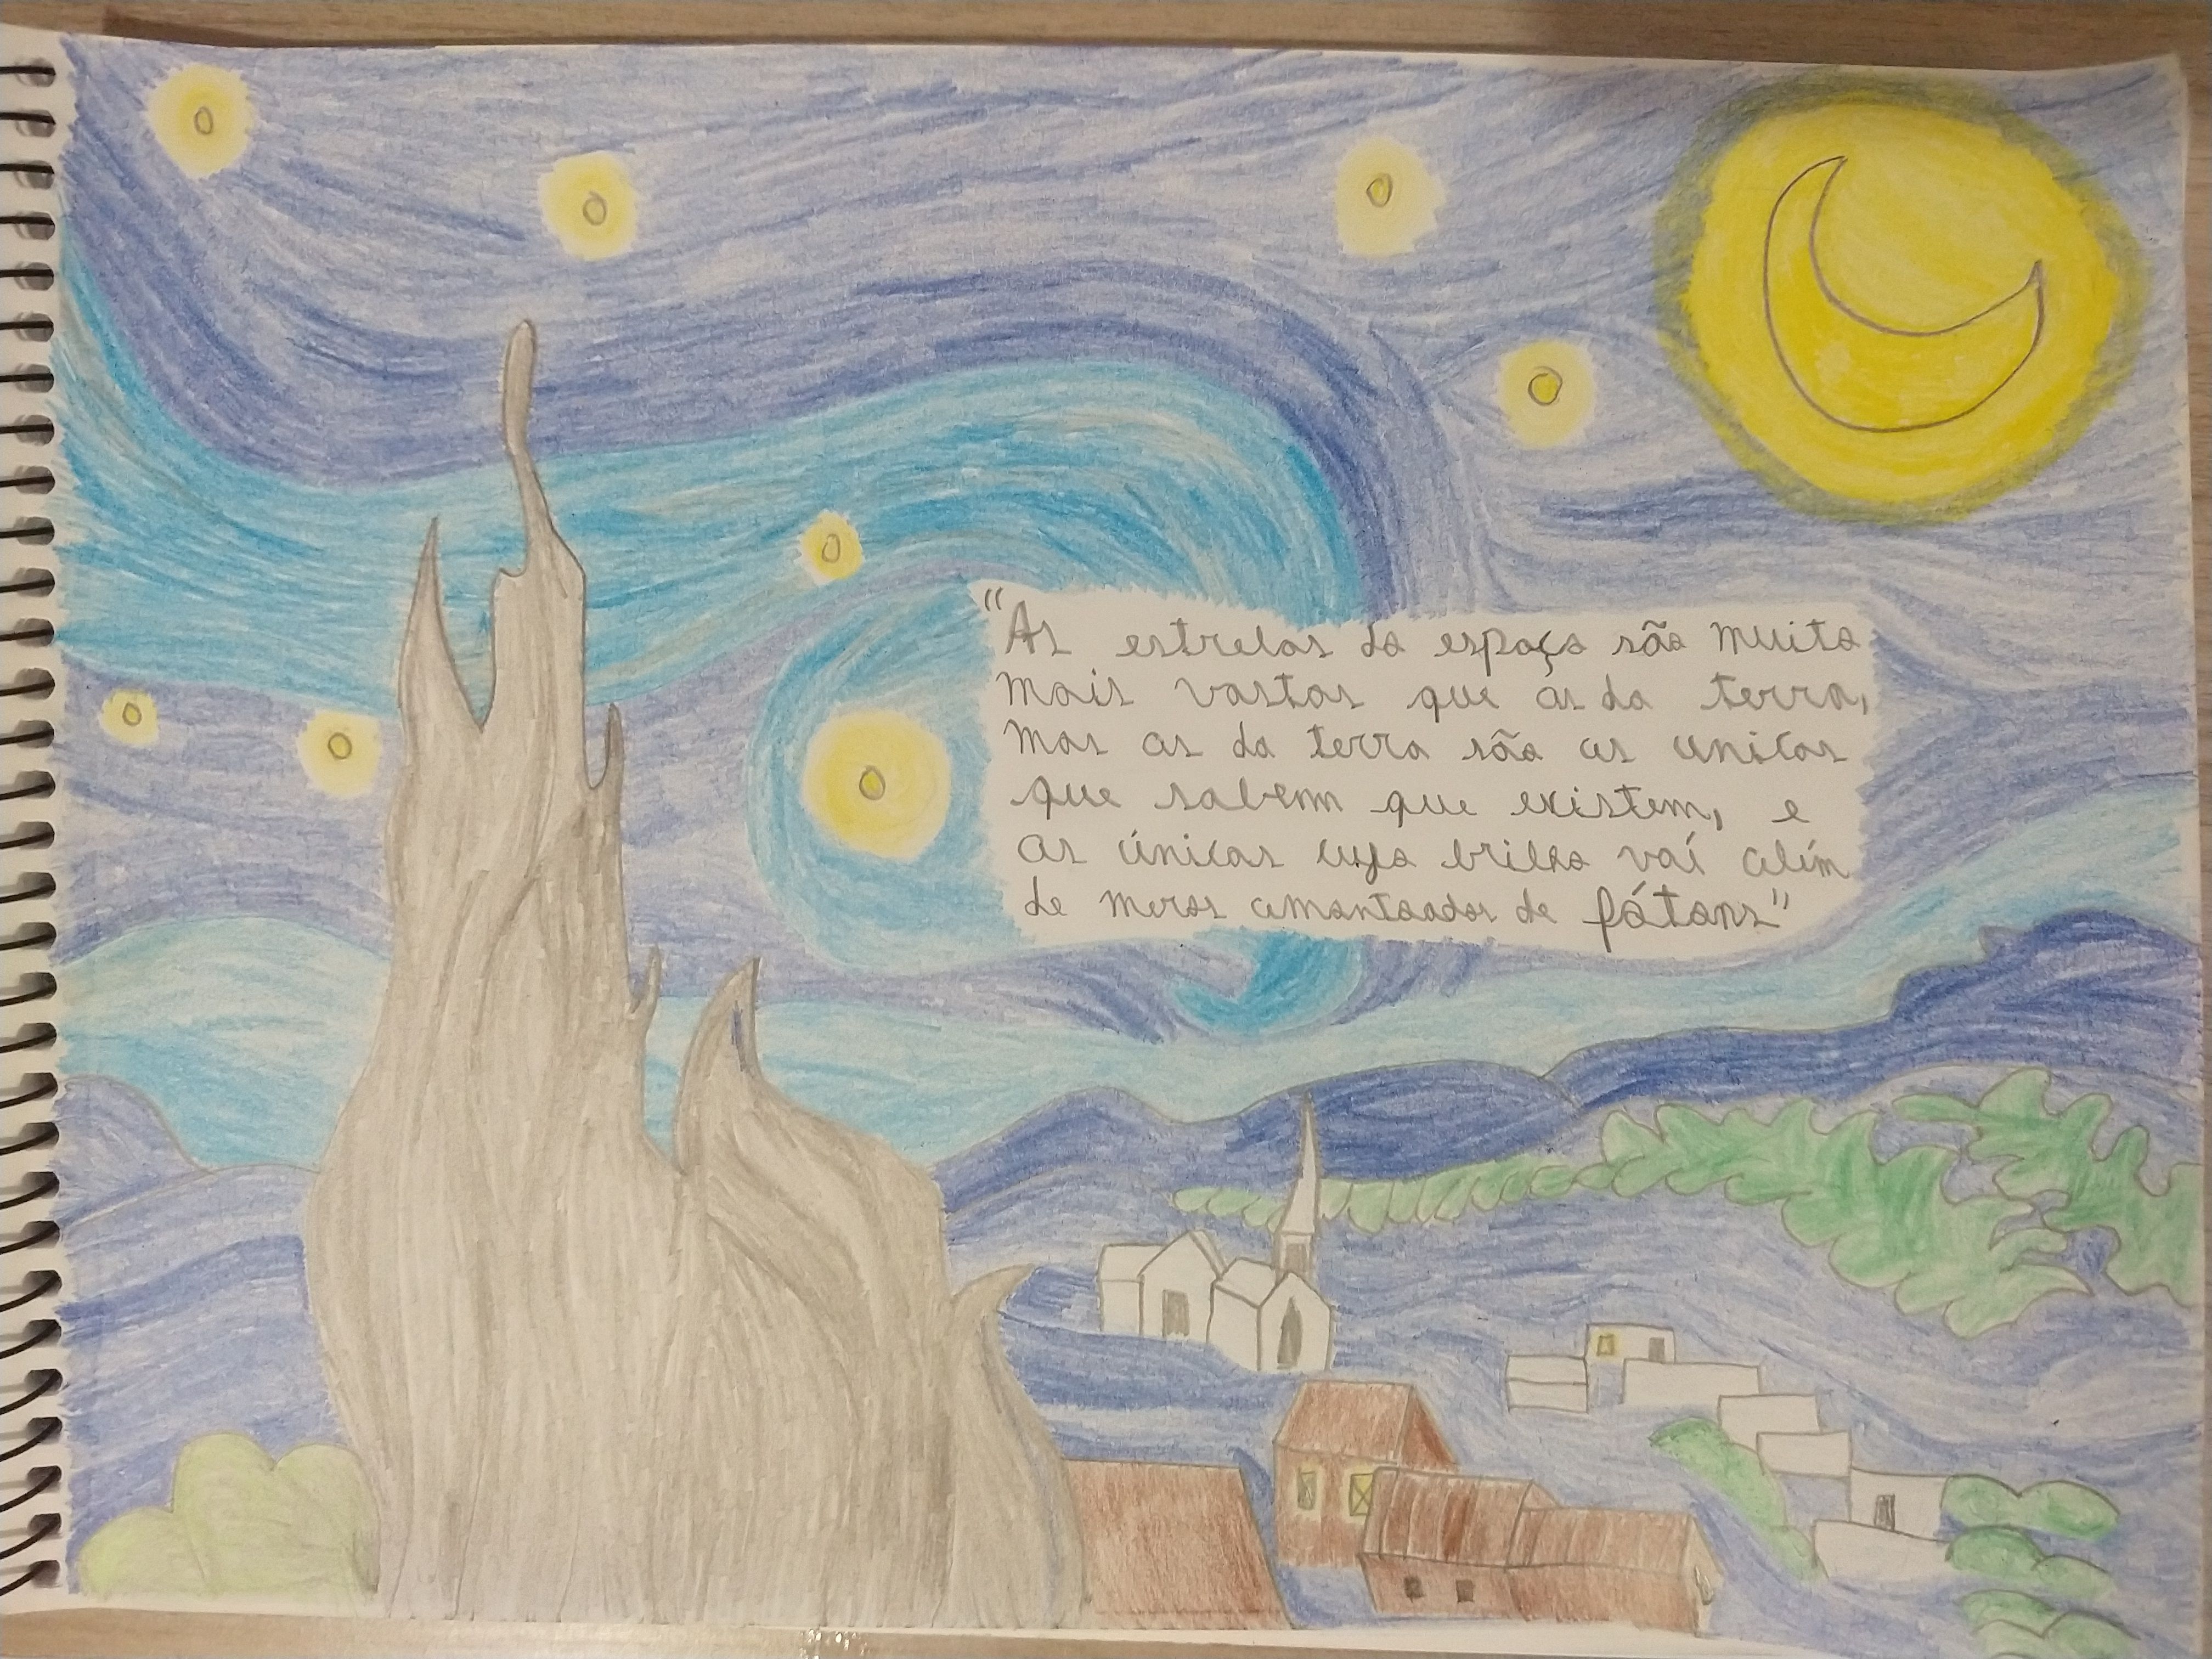 "As estrelas do espaço são muito
mais vastas que as da terra,
mas as da terra são as unicas
que sabem que existem, e
as únicas cujo brilho vai além
de meros amontoados de fótons"